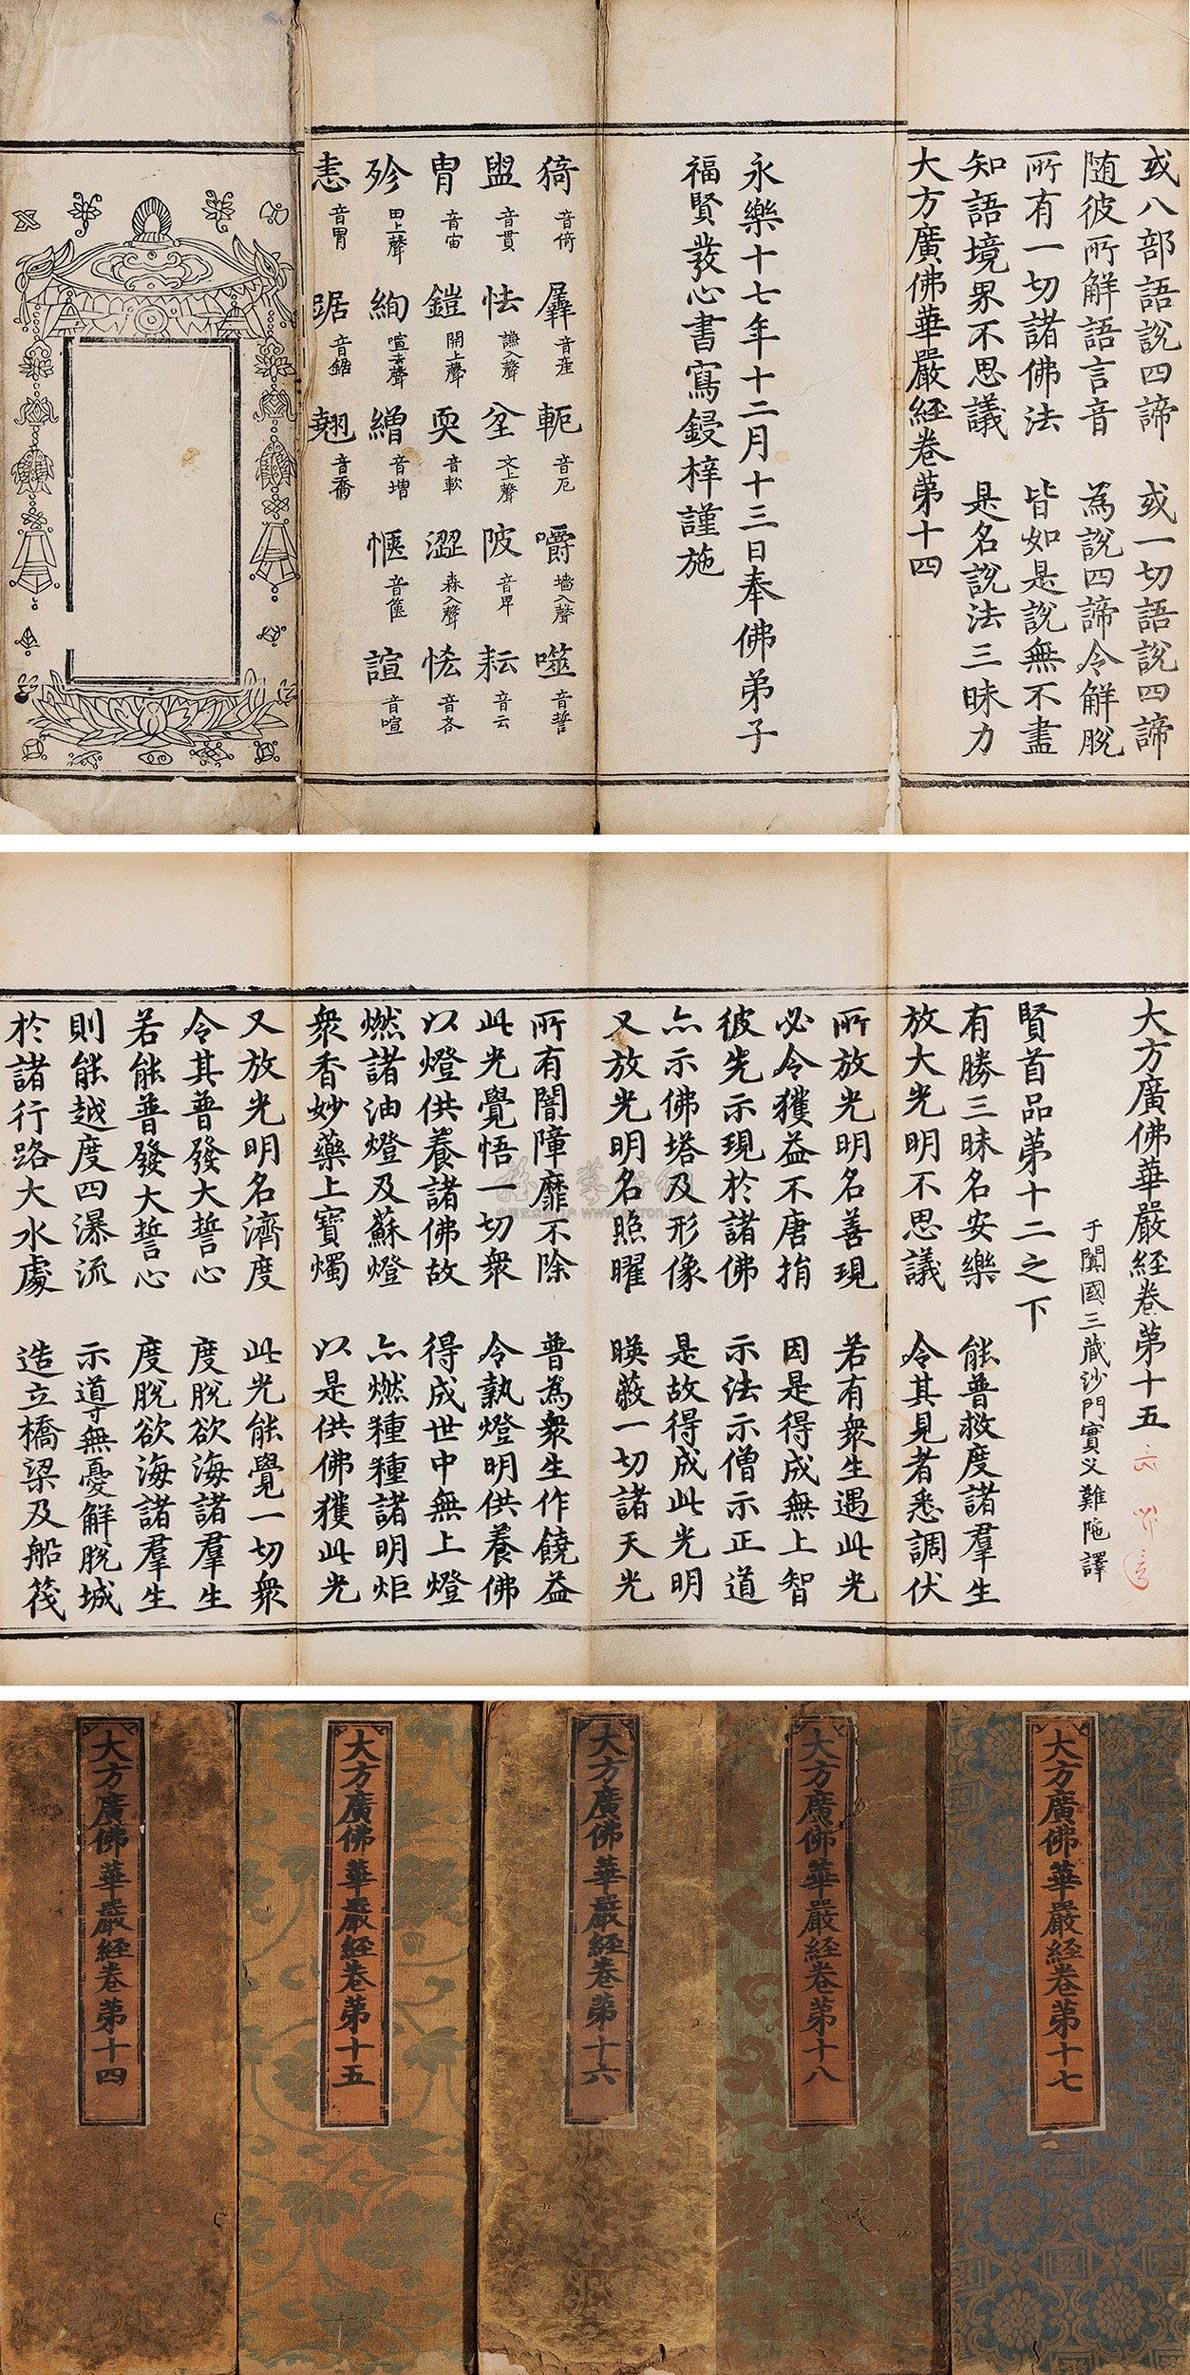 或八部語說四諦　或一切語說四諦
随彼所解語言音　為說四諦令解脫
所有一切諸佛法　皆如是說無不盡
知語境界不思議　是名說法三昧力
大方廣佛華嚴經卷第十四
永樂十七年十二月十三日奉佛弟子
福賢發心書寫鋟梓謹施
猗音倚　羼音産　軛音厄　嚼墻入聲　噬音誓
盥音貫　怯謙入聲　坌文上聲　陂音卑　耘音云
冑音宙　鎧開上聲　耎音軟　澀森入聲　恡音吝
殄田上聲　絢喧去聲　繒音増　愜音篋　諠音喧
恚音胃　踞音鋸　翹音喬
大方廣佛華嚴經卷第十五
于闐國三藏沙門實叉難陁譯
賢首品第十二之下
有勝三昧名安樂　能普救度諸羣生
放大光明不思議　令其見者悉調伏
所放光明名善現　若有衆生遇此光
必令獲益不唐捐　因是得成無上智
彼先示現於諸佛　示法示僧示正道
亦示佛塔及形像　是故得成此光明
又放光明名照曜　暎蔽一切諸天光
所有闇障靡不除　普為衆生作饒益
此光覺悟一切衆　令執燈明供養佛
以燈供養諸佛故　得成世中無上燈
燃諸油燈及蘇燈　亦燃種種諸明炬
衆香妙藥上寶燭　以是供佛獲此光
又放光明名濟度　此光能覺一切衆
令其普發大誓心　度脫欲海諸羣生
若能普發大誓心　度脫欲海諸羣生
則能越度四瀑流　示導無憂解脫城
於諸行路大水處　造立橋梁及船筏
大方廣佛華嚴經卷第十七
大方廣佛華嚴經卷第十八
大方廣佛華嚴經卷第十六
大方廣佛華嚴經卷第十五
大方廣佛華嚴經卷第十四